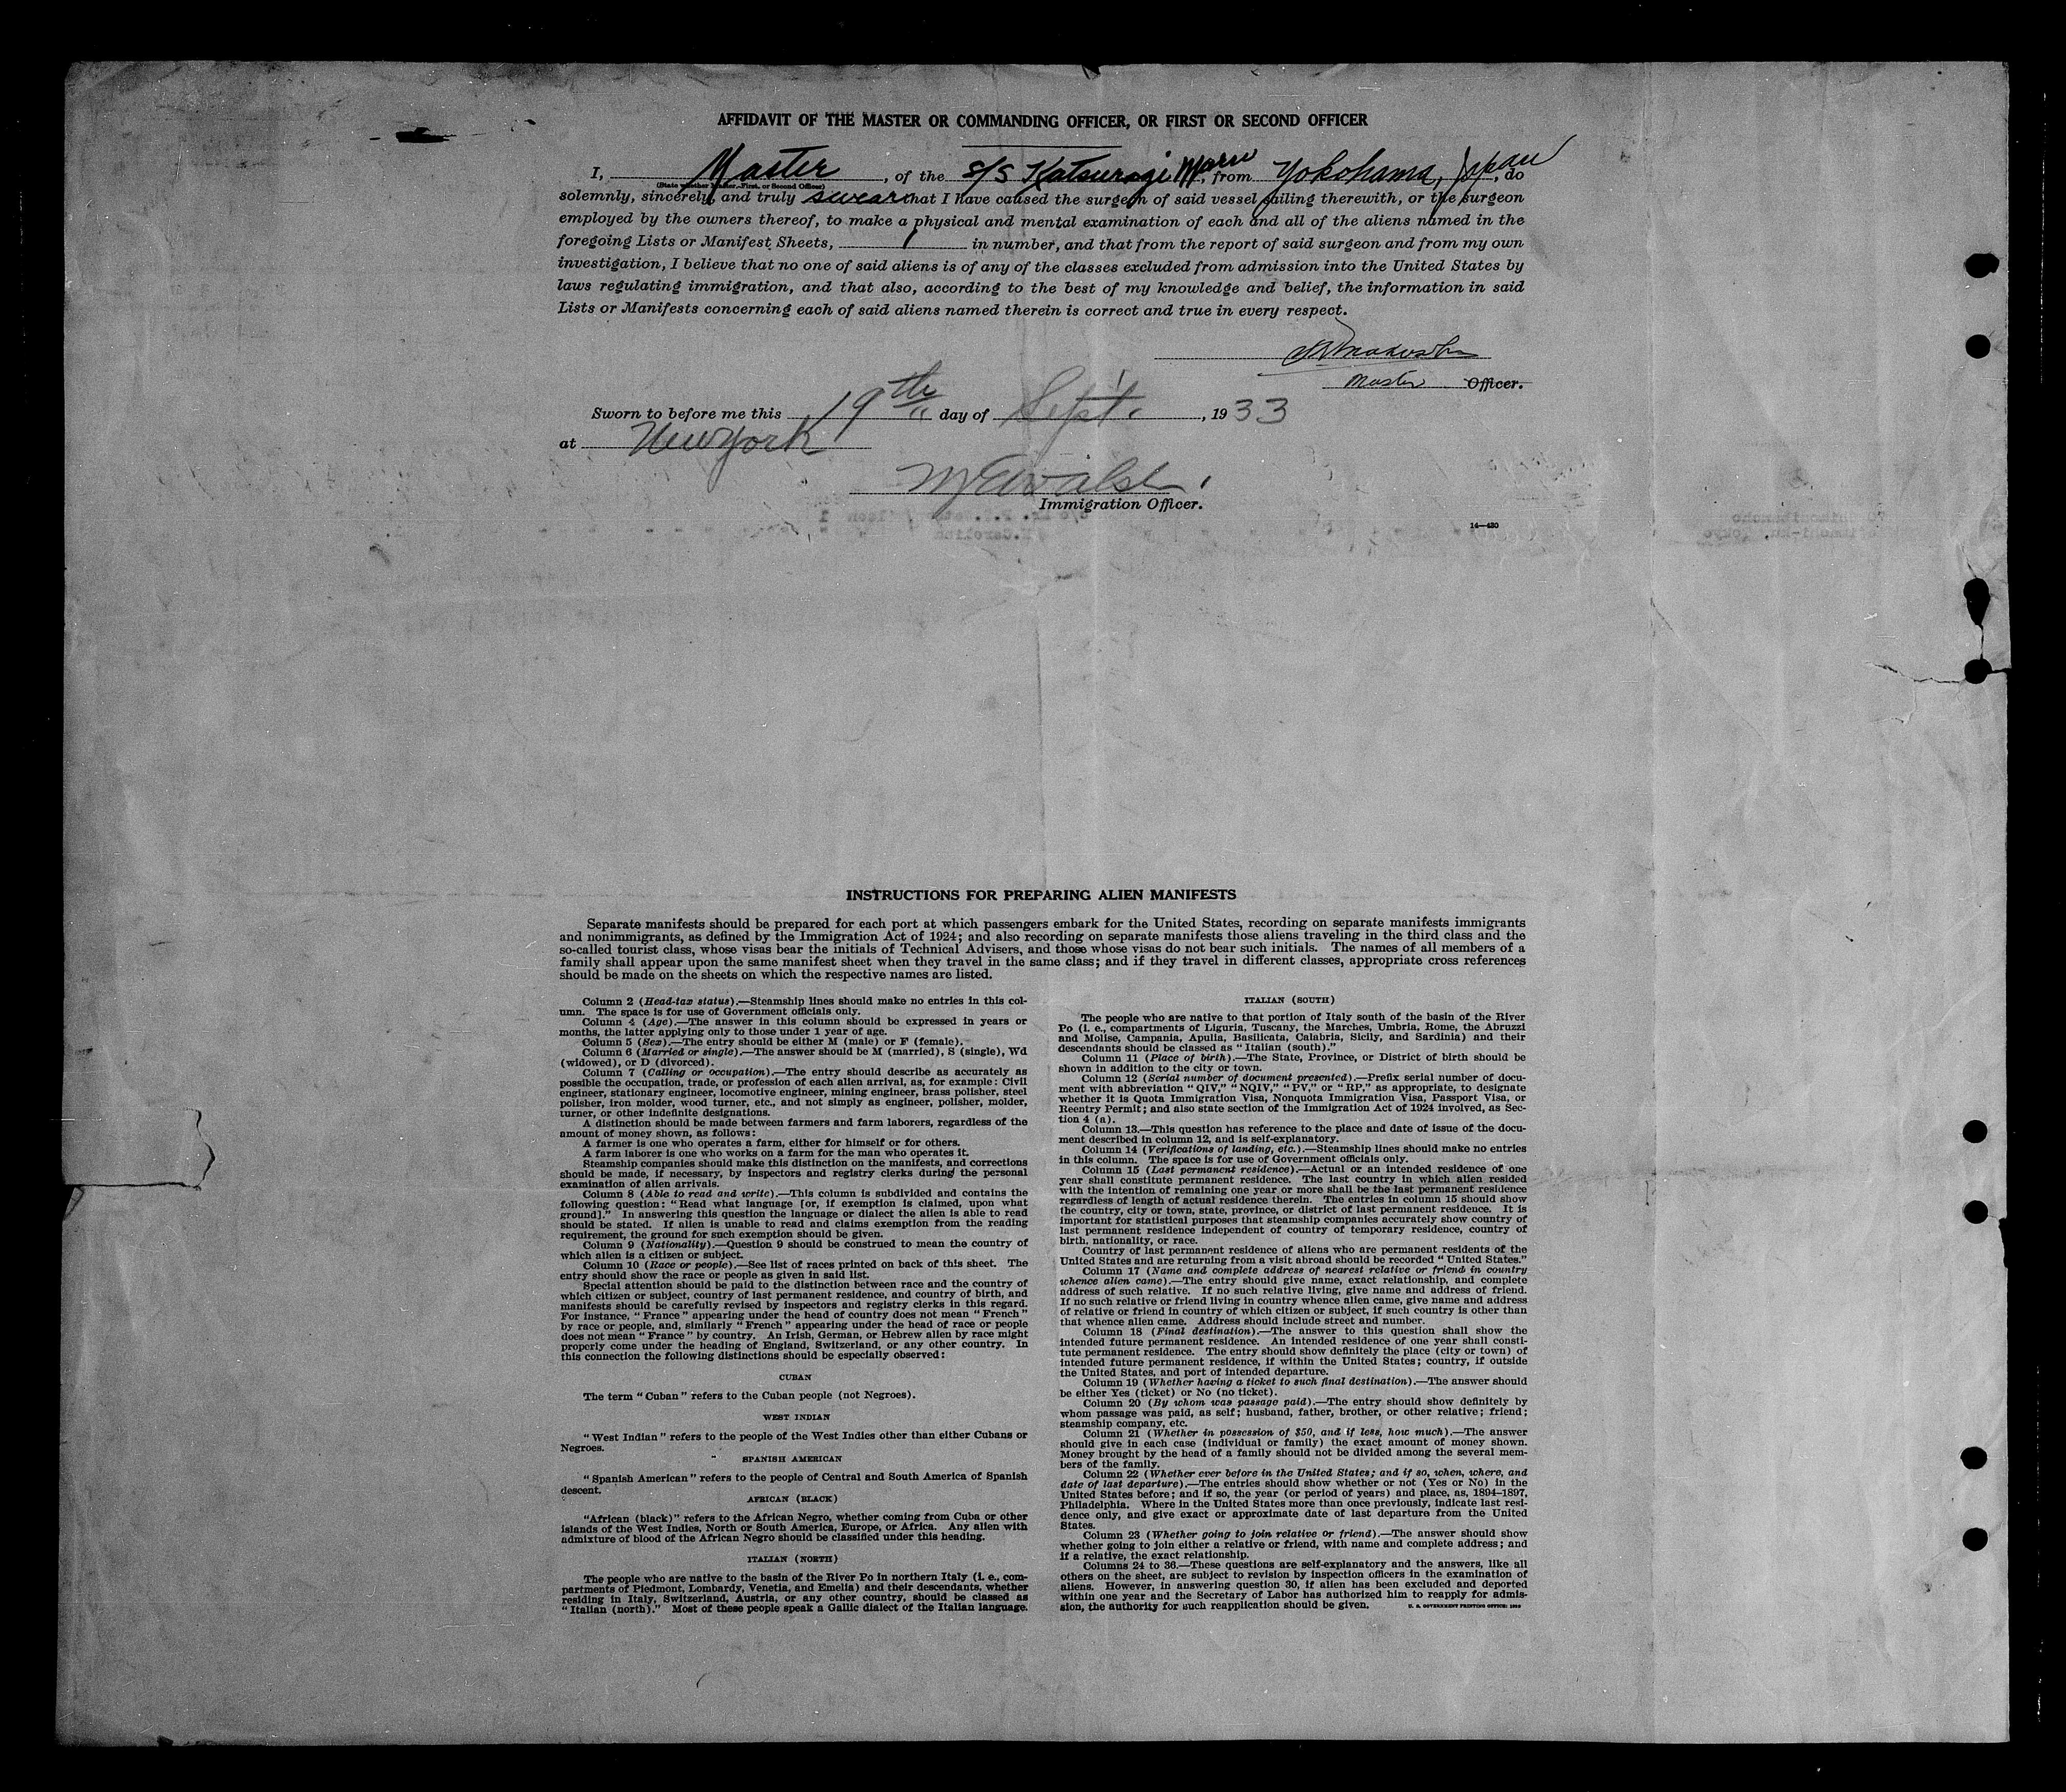 AFFIDAVIT OF THE MASTER OR COMMANDING OFFICER, OR FIRST OR SECOND OFFICER
I, Master, of the S/S Katsuragi Maru, from Yokohama, Japan, do
(State whether Master, First, or Second Officer)
solemnly, sincerely, and truly swear that I have caused the surgeon of said vessel sailing therewith, or the surgeon
employed by the owners thereof, to make a physical and mental examination of each and all of the aliens named in the
foregoing Lists or Manifest Sheets, 1 in number, and that from the report of said surgeon and from my own
investigation, I believe that no one of said aliens is of any of the classes excluded from admission into the United States by
laws regulating immigration, and that also, according to the best of my knowledge and belief, the information in said
Lists or Manifests concerning each of said aliens named therein is correct and true in every respect.
Master Officer.
Sworn to before me this 19th day of Sept., 1933
at New York
Immigration Officer.
14—430
INSTRUCTIONS FOR PREPARING ALIEN MANIFESTS
Separate manifests should be prepared for each port at which passengers embark for the United States, recording on separate manifests immigrants
and nonimmigrants, as defined by the Immigration Act of 1924; and also recording on separate manifests those aliens traveling in the third class and the
so-called tourist class, whose visas bear the initials of Technical Advisers, and those whose visas do not bear such initials. The names of all members of a
family shall appear upon the same manifest sheet when they travel in the same class; and if they travel in different classes, appropriate cross references
should be made on the sheets on which the respective names are listed.
Column 2 (Head-tax status).—Steamship lines should make no entries in this col-
umn. The space is for use of Government officials only.
Column 4 (Age).—The answer in this column should be expressed in years or
months, the latter applying only to those under 1 year of age.
Column 5 (Sex).—The entry should be either M (male) or F (female).
Column 6 (Married or single).—The answer should be M (married), S (single), Wd
(widowed), or D (divorced).
Column 7 (Calling or occupation).—The entry should describe as accurately as
possible the occupation, trade, or profession of each alien arrival, as, for example: Civil
engineer, stationary engineer, locomotive engineer, mining engineer, brass polisher, steel
polisher, iron molder, wood turner, etc., and not simply as engineer, polisher, molder,
turner, or other indefinite designations.
A distinction should be made between farmers and farm laborers, regardless of the
amount of money shown, as follows:
A farmer is one who operates a farm, either for himself or for others.
A farm laborer is one who works on a farm for the man who operates it.
Steamship companies should make this distinction on the manifests, and corrections
should be made, if necessary, by inspectors and registry clerks during the personal
examination of alien arrivals.
Column 8 (Able to read and write).—This column is subdivided and contains the
following question: "Read what language [or, if exemption is claimed, upon what
ground]." In answering this question the language or dialect the alien is able to read
should be stated. If alien is unable to read and claims exemption from the reading
requirement, the ground for such exemption should be given.
Column 9 (Nationality).—Question 9 should be construed to mean the country of
which alien is a citizen or subject.
Column 10 (Race or people).—See list of races printed on back of this sheet. The
entry should show the race or people as given in said list.
Special attention should be paid to the distinction between race and the country of
which citizen or subject, country of last permanent residence, and country of birth, and
manifests should be carefully revised by inspectors and registry clerks in this regard.
For instance, "France" appearing under the head of country does not mean "French"
by race or people, and, similarly "French" appearing under the head of race or people
does not mean "France" by country. An Irish, German, or Hebrew alien by race might
properly come under the heading of England, Switzerland, or any other country. In
this connection the following distinctions should be especially observed:
CUBAN
The term "Cuban" refers to the Cuban people (not Negroes).
WEST INDIAN
"West Indian" refers to the people of the West Indies other than either Cubans or
Negroes.
SPANISH AMERICAN
"Spanish American" refers to the people of Central and South America of Spanish
descent.
AFRICAN (BLACK)
"African (black)" refers to the African Negro, whether coming from Cuba or other
islands of the West Indies, North or South America, Europe, or Africa. Any alien with
admixture of blood of the African Negro should be classified under this heading.
ITALIAN (NORTH)
The people who are native to the basin of the River Po in northern Italy (i. e., com-
partments of Piedmont, Lombardy, Venetia, and Emelia) and their descendants, whether
residing in Italy, Switzerland, Austria, or any other country, should be classed as
"Italian (north)." Most of these people speak a Gallic dialect of the Italian language.
ITALIAN (SOUTH)
The people who are native to that portion of Italy south of the basin of the River
Po (i. e., compartments of Liguria, Tuscany, the Marches, Umbria, Rome, the Abruzzi
and Molise, Campania, Apulia, Basilicata, Calabria, Sicily, and Sardinia) and their
descendants should be classed as "Italian (south)."
Column 11 (Place of birth).—The State, Province, or District of birth should be
shown in addition to the city or town.
Column 12 (Serial number of document presented).—Prefix serial number of docu-
ment with abbreviation "QIV," "NQIV," "PV," or "RP," as appropriate, to designate
whether it is Quota Immigration Visa, Nonquota Immigration Visa, Passport Visa, or
Reentry Permit; and also state section of the Immigration Act of 1924 involved, as Sec-
tion 4 (a).
Column 13.—This question has reference to the place and date of issue of the docu-
ment described in column 12, and is self-explanatory.
Column 14 (Verifications of landing, etc.).—Steamship lines should make no entries
in this column. The space is for use of Government officials only.
Column 15 (Last permanent residence).—Actual or an intended residence of one
year shall constitute permanent residence. The last country in which alien resided
with the intention of remaining one year or more shall be the last permanent residence
regardless of length of actual residence therein. The entries in column 15 should show
the country, city or town, state, province, or district of last permanent residence. It is
important for statistical purposes that steamship companies accurately show country of
last permanent residence independent of country of temporary residence, country of
birth, nationality, or race.
Country of last permanent residence of aliens who are permanent residents of the
United States and are returning from a visit abroad should be recorded "United States."
Column 17 (Name and complete address of nearest relative or friend in country
whence alien came).—The entry should give name, exact relationship, and complete
address of such relative. If no such relative living, give name and address of friend.
If no such relative or friend living in country whence alien came, give name and address
of relative or friend in country of which citizen or subject, if such country is other than
that whence alien came. Address should include street and number.
Column 18 (Final destination).—The answer to this question shall show the
intended future permanent residence. An intended residence of one year shall consti-
tute permanent residence. The entry should show definitely the place (city or town) of
intended future permanent residence, if within the United States; country, if outside
the United States, and port of intended departure.
Column 19 (Whether having a ticket to such final destination).—The answer should
be either Yes (ticket) or No (no ticket).
Column 20 (By whom was passage paid).—The entry should show definitely by
whom passage was paid, as self; husband, father, brother, or other relative; friend;
steamship company, etc.
Column 21 (Whether in possession of $50, and if less, how much).—The answer
should give in each case (individual or family) the exact amount of money shown.
Money brought by the head of a family should not be divided among the several mem-
bers of the family.
Column 22 (Whether ever before in the United States; and if so, when, where, and
date of last departure).—The entries should show whether or not (Yes or No) in the
United States before; and if so, the year (or period of years) and place, as, 1894–1897,
Philadelphia. Where in the United States more than once previously, indicate last resi-
dence only, and give exact or approximate date of last departure from the United
States.
Column 23 (Whether going to join relative or friend).—The answer should show
whether going to join either a relative or friend, with name and complete address; and
if a relative, the exact relationship.
Columns 24 to 36.—These questions are self-explanatory and the answers, like all
others on the sheet, are subject to revision by inspection officers in the examination of
aliens. However, in answering question 30, if alien has been excluded and deported
within one year and the Secretary of Labor has authorized him to reapply for admis-
sion, the authority for such reapplication should be given.
U. S. GOVERNMENT PRINTING OFFICE: